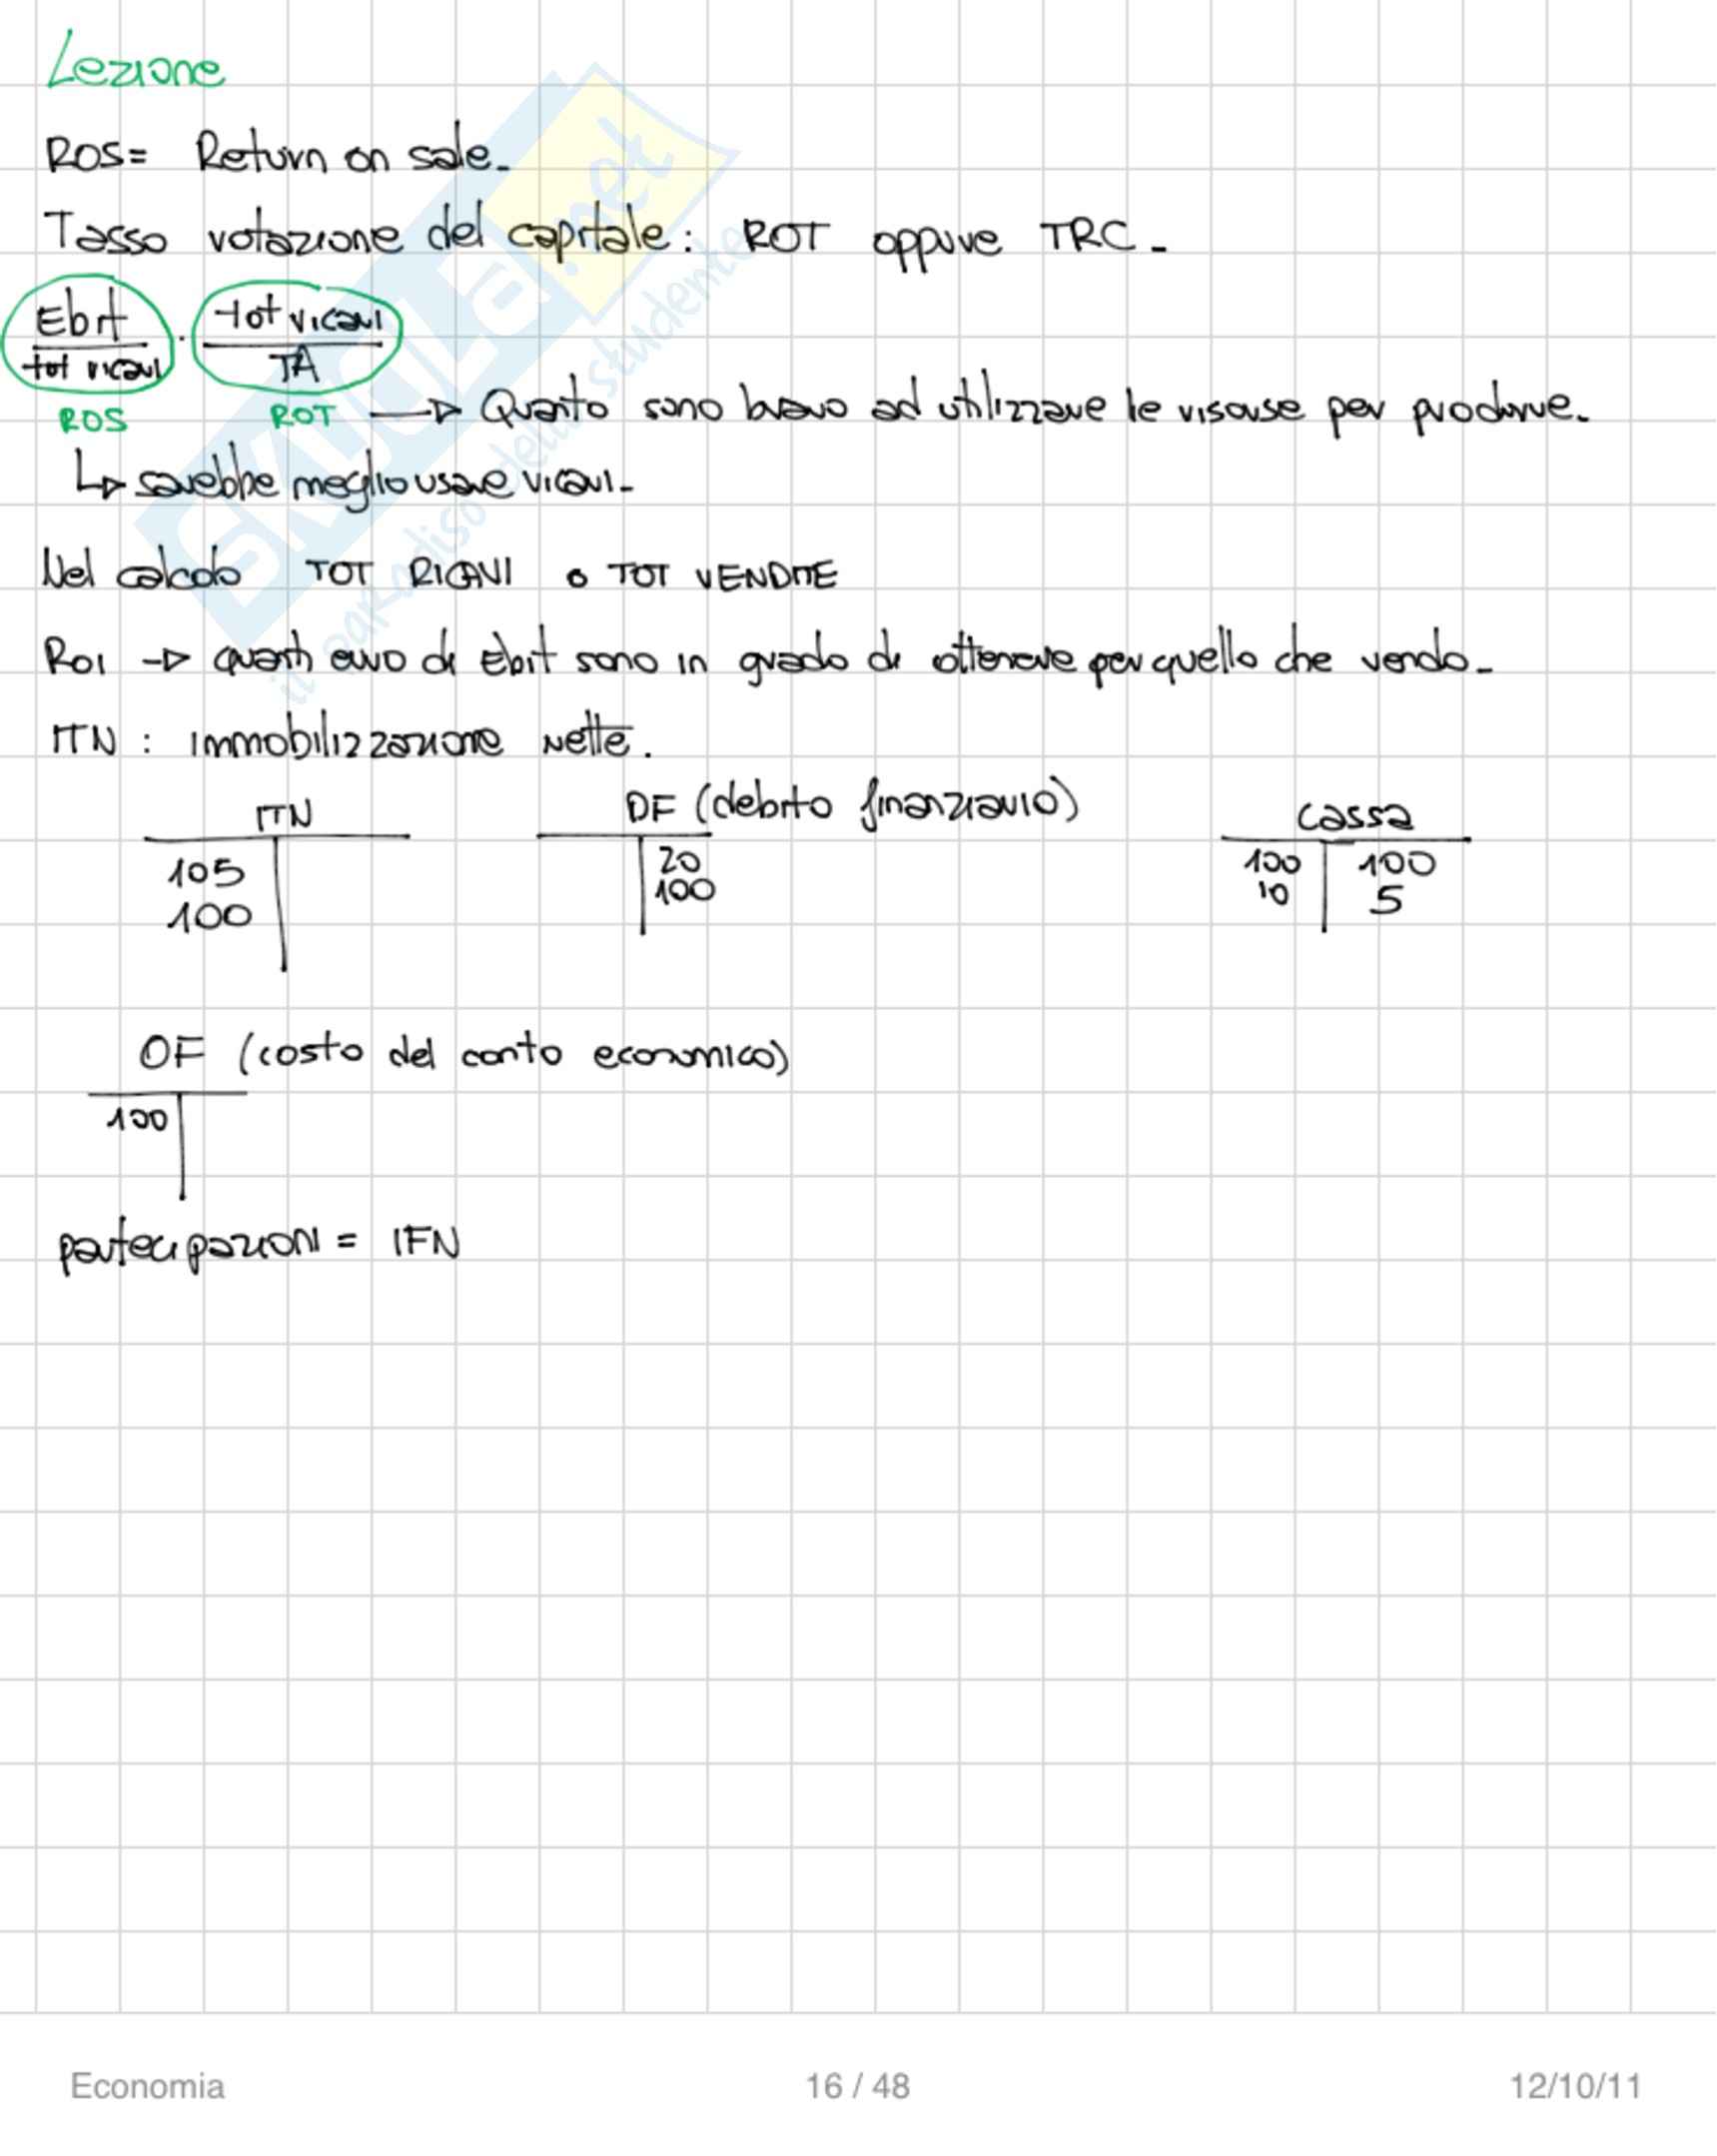 Lezione
ROS= Return on sale.
Tasso rotazione del capitale: ROT oppure TRC.
Ebit · tot ricavi
tot ricavi TA
ROS ROT → Quanto sono bravo ad utilizzare le risorse per produrre.
↳ sarebbe meglio usare ricavi.
Nel calcolo TOT RICAVI o TOT VENDITE
ROI → quanti euro di Ebit sono in grado di ottenere per quello che vendo.
ITN : immobilizzazione nette.
ITN DF (debito finanziario) cassa
105 20 100 100
100 100 10 5
OF (costo del conto economico)
100
partecipazioni = IFN
SKUOLA.net
il paradiso dello studente
Economia 16 / 48 12/10/11